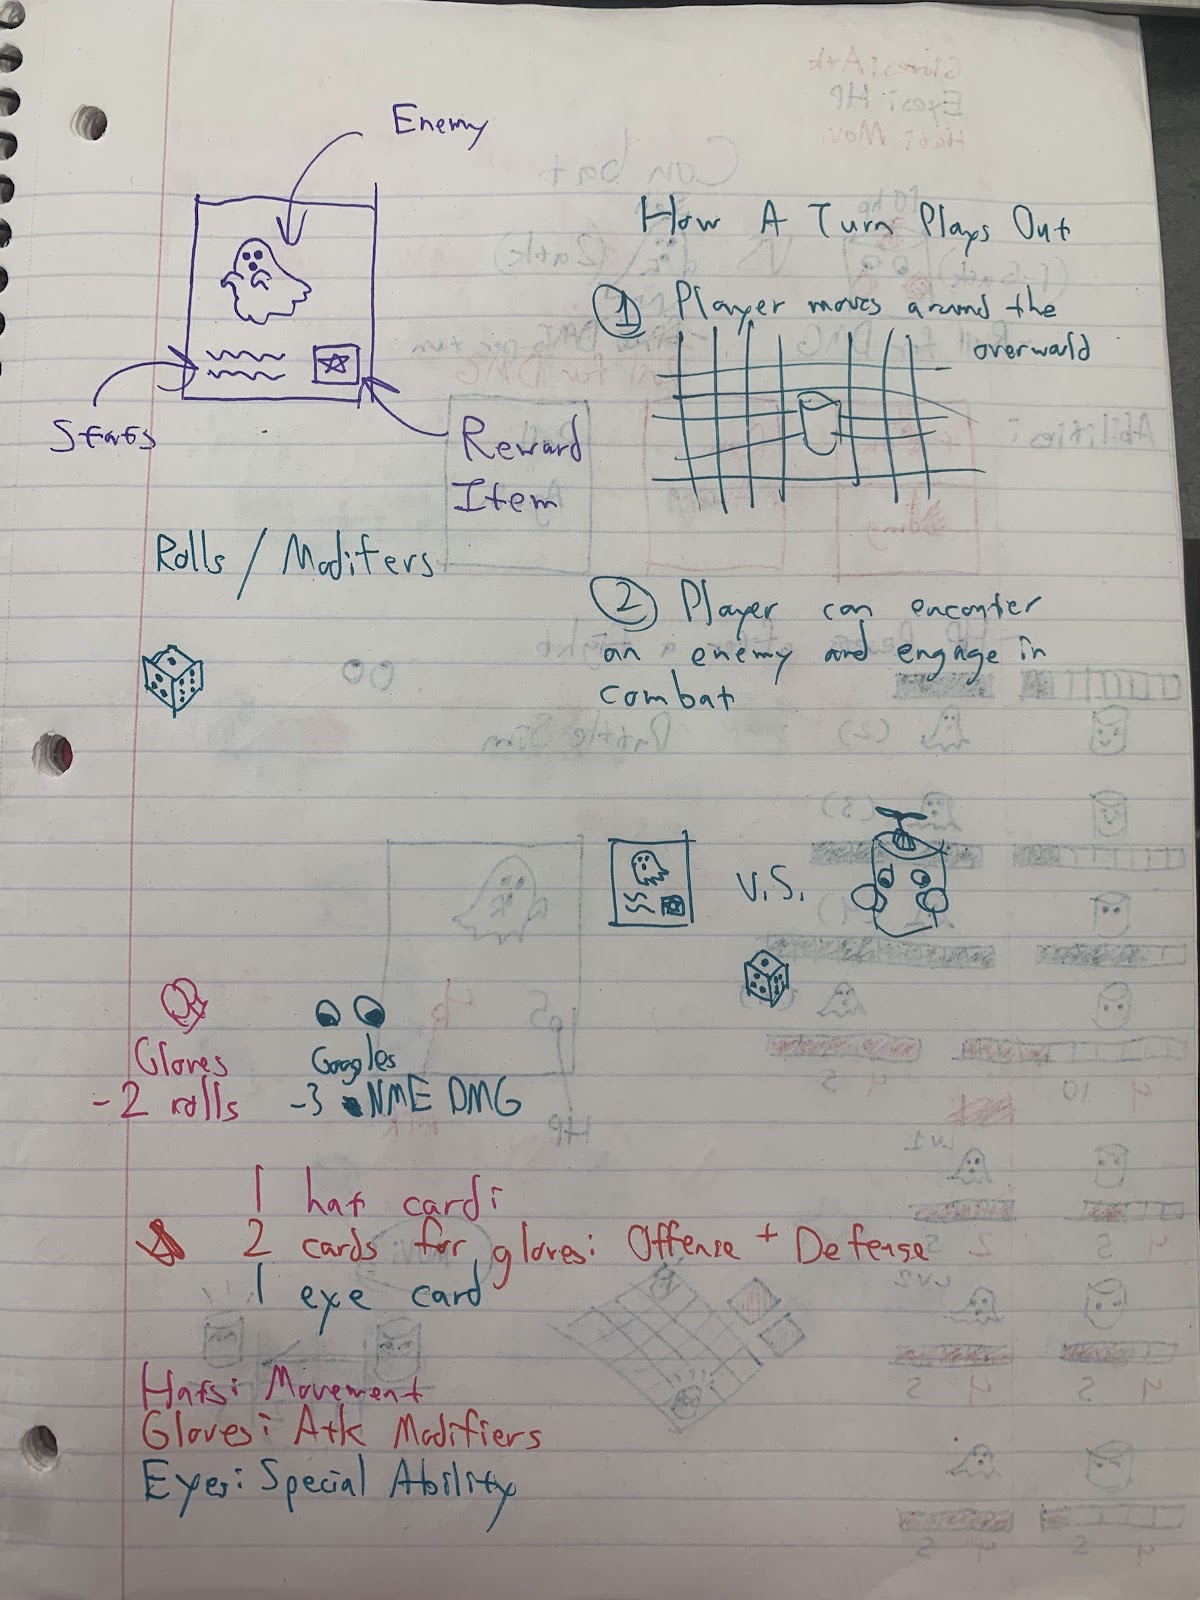 Enemy
Stats
Reward
Item
Rolls / Modifers
How A Turn Plays Out
1 Player moves around the
overwald
2 Player can enconter
an enemy and engage in
combat
V.S.
Gloves
-2 rolls
Googles
-3 NME DMG
1 hat card:
2 cards for gloves: Offense + Defense
1 eye card
Hats: Movement
Gloves: Atk Modifiers
Eyes: Special Ability